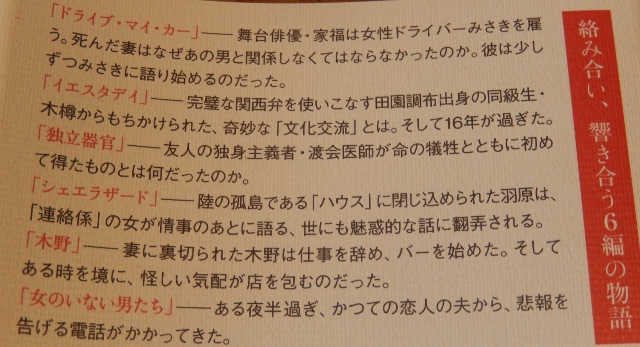 絡み合い、響き合う6編の物語
「ドライブ・マイ・カー」—— 舞台俳優・家福は女性ドライバーみさきを雇
う。死んだ妻はなぜあの男と関係しなくてはならなかったのか。彼は少し
ずつみさきに語り始めるのだった。
「イエスタデイ」—— 完璧な関西弁を使いこなす田園調布出身の同級生・
木樽からもちかけられた、奇妙な「文化交流」とは。そして16年が過ぎた。
「独立器官」—— 友人の独身主義者・渡会医師が命の犠牲とともに初め
て得たものとは何だったのか。
「シェエラザード」—— 陸の孤島である「ハウス」に閉じ込められた羽原は、
「連絡係」の女が情事のあとに語る、世にも魅惑的な話に翻弄される。
「木野」—— 妻に裏切られた木野は仕事を辞め、バーを始めた。そして
ある時を境に、怪しい気配が店を包むのだった。
「女のいない男たち」—— ある夜半過ぎ、かつての恋人の夫から、悲報を
告げる電話がかかってきた。